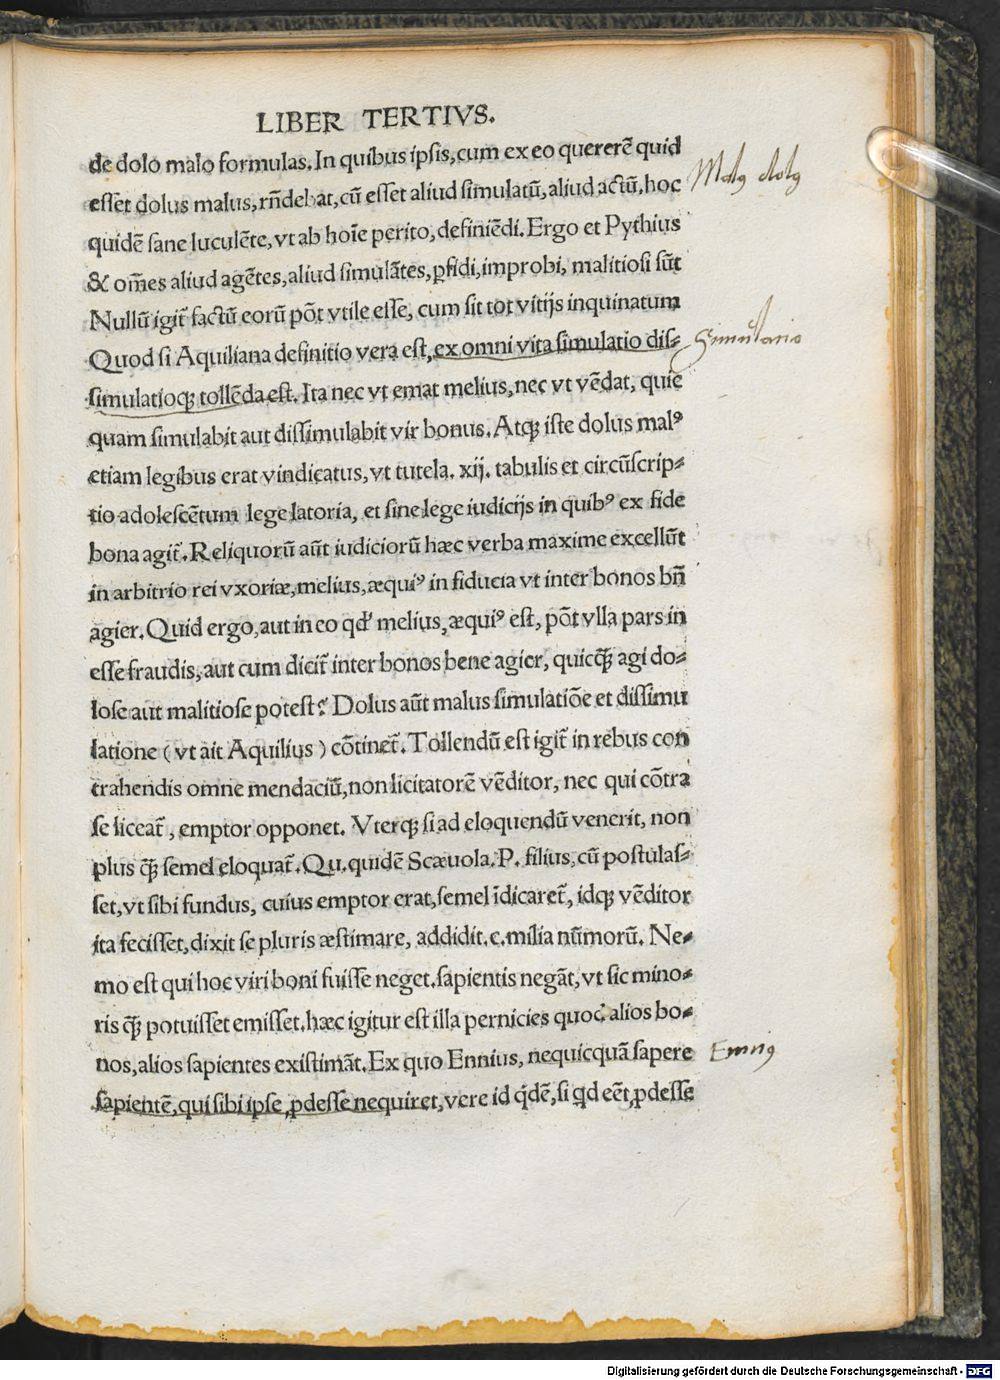 LIBER TERTIVS.
de dolo malo formulas. In quibus ipsis, cum ex eo quererē quid
esset dolus malus, rn̄debat, cū esset aliud simulatū, aliud actū, hoc
quidē sane luculēte, vt ab hoīe perito, definiēdi. Ergo et Pythius
& om̄es aliud agētes, aliud simulātes, ꝑfidi, improbi, malitiosi sūt
Nullū igit᷑ factū eorū pōt vtile esse, cum sit tot vitijs inquinatum
Quod si Aquiliana definitio vera est, ex omni vita simulatio dis⸗
simulatioqꝫ tollēda est. Ita nec vt emat melius, nec vt vēdat, quic
quam simulabit aut dissimulabit vir bonus. Atqꝫ iste dolus malꝰ
etiam legibus erat vindicatus, vt tutela. xij. tabulis et circūscrip⸗
tio adolescētum lege latoria, et sine lege iudicijs in quibꝰ ex fide
bona agit᷑. Reliquorū aūt iudiciorū hæc verba maxime excellūt
in arbitrio rei vxoriæ, melius, æquiꝰ in fiducia vt inter bonos bn̄
agier. Quid ergo, aut in eo qd' melius, æquiꝰ est, pōt vlla pars in
esse fraudis, aut cum dicit᷑ inter bonos bene agier, quicꝙ̄ agi do⸗
lose aut malitiose potest? Dolus aūt malus simulatiōe et dissimu
latione (vt ait Aquilius) cōtinet᷑. Tollendū est igit᷑ in rebus con
trahendis omne mendaciū, non licitatorē vēditor, nec qui cōtra
se liceat᷑, emptor opponet. Vterqꝫ si ad eloquendū venerit, non
plus ꝙ̄ semel eloquat᷑. Qu. quidē Scæuola. P. filius, cū postulas⸗
set, vt sibi fundus, cuius emptor erat, semel īdicaret᷑, idqꝫ vēditor
ita fecisset, dixit se pluris æstimare, addidit. c. milia nūmorū. Ne⸗
mo est qui hoc viri boni fuisse neget. sapientis negāt, vt sic mino⸗
ris ꝙ̄ potuisset emisset. hæc igitur est illa pernicies quod alios bo⸗
nos, alios sapientes existimāt. Ex quo Ennius, nequicquā sapere
sapientē, qui sibi ipse ꝓdesse nequiret, vere id qdē, si qd eēt, ꝓdesse
Malꝰ dolꝰ
Simulatio
Enniꝰ
Digitalisierung gefördert durch die Deutsche Forschungsgemeinschaft - DFG